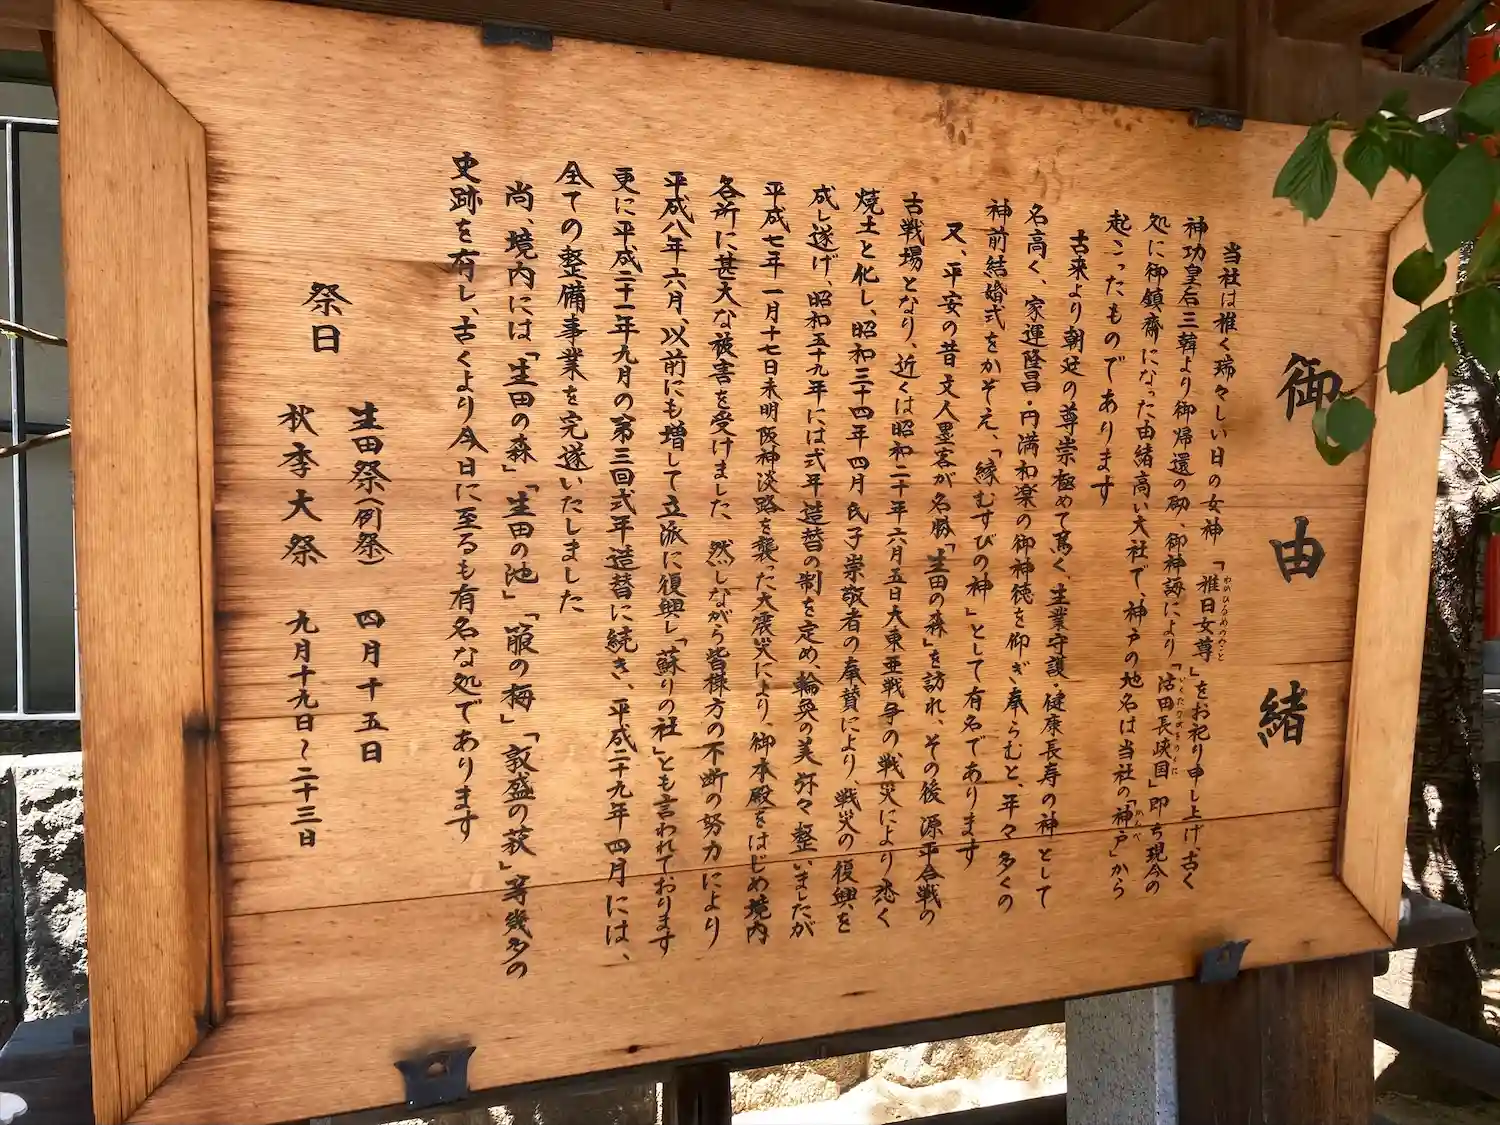 御由緒
当社は稚く瑞々しい日の女神「稚日女尊」をお祀り申し上げ、古く
わかひるめのみこと
神功皇后三韓より御帰還の砌、御神誨により「活田長峡国」即ち現今の
いくたながさのくに
処に御鎮斎になった由緒高い大社で、神戸の地名は当社の「神戸」から
かんべ
起こったものであります
古来より朝廷の尊崇極めて篤く、生業守護・健康長寿の神として
名高く、家運隆昌・円満和楽の御神徳を仰ぎ奉らむと、年々多くの
神前結婚式をかぞえ、「縁むすびの神」として有名であります
又、平安の昔文人墨客が名勝「生田の森」を訪れ、その後源平合戦の
古戦場となり、近くは昭和二十年六月五日大東亜戦争の戦災により悉く
焼土と化し、昭和三十四年四月氏子崇敬者の奉賛により、戦災の復興を
成し遂げ、昭和五十九年には式年造替の制を定め、輪奐の美弥々整いましたが
平成七年一月十七日未明阪神淡路を襲った大震災により、御本殿をはじめ境内
各所に甚大な被害を受けました 然しながら皆様方の不断の努力により
平成八年六月、以前にも増して立派に復興し「蘇りの社」とも言われております
更に平成二十一年九月の第三回式年造替に続き、平成二十九年四月には、
全ての整備事業を完遂いたしました
尚、境内には「生田の森」「生田の池」「箙の梅」「敦盛の萩」等幾多の
史跡を有し、古くより今日に至るも有名な処であります
祭日
生田祭(例祭) 四月十五日
秋季大祭 九月十九日～二十三日